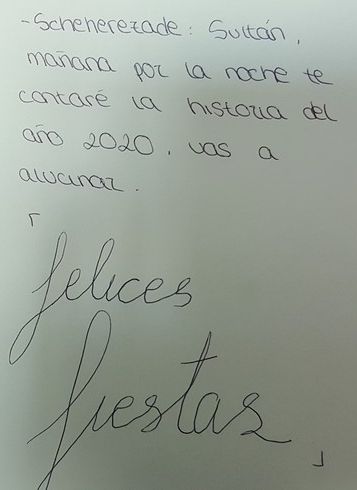 -Scheherezade: Sultán,
mañana por la noche te
contaré la historia del
año 2020, vas a
alucinar.
「
felices
fiestas
」